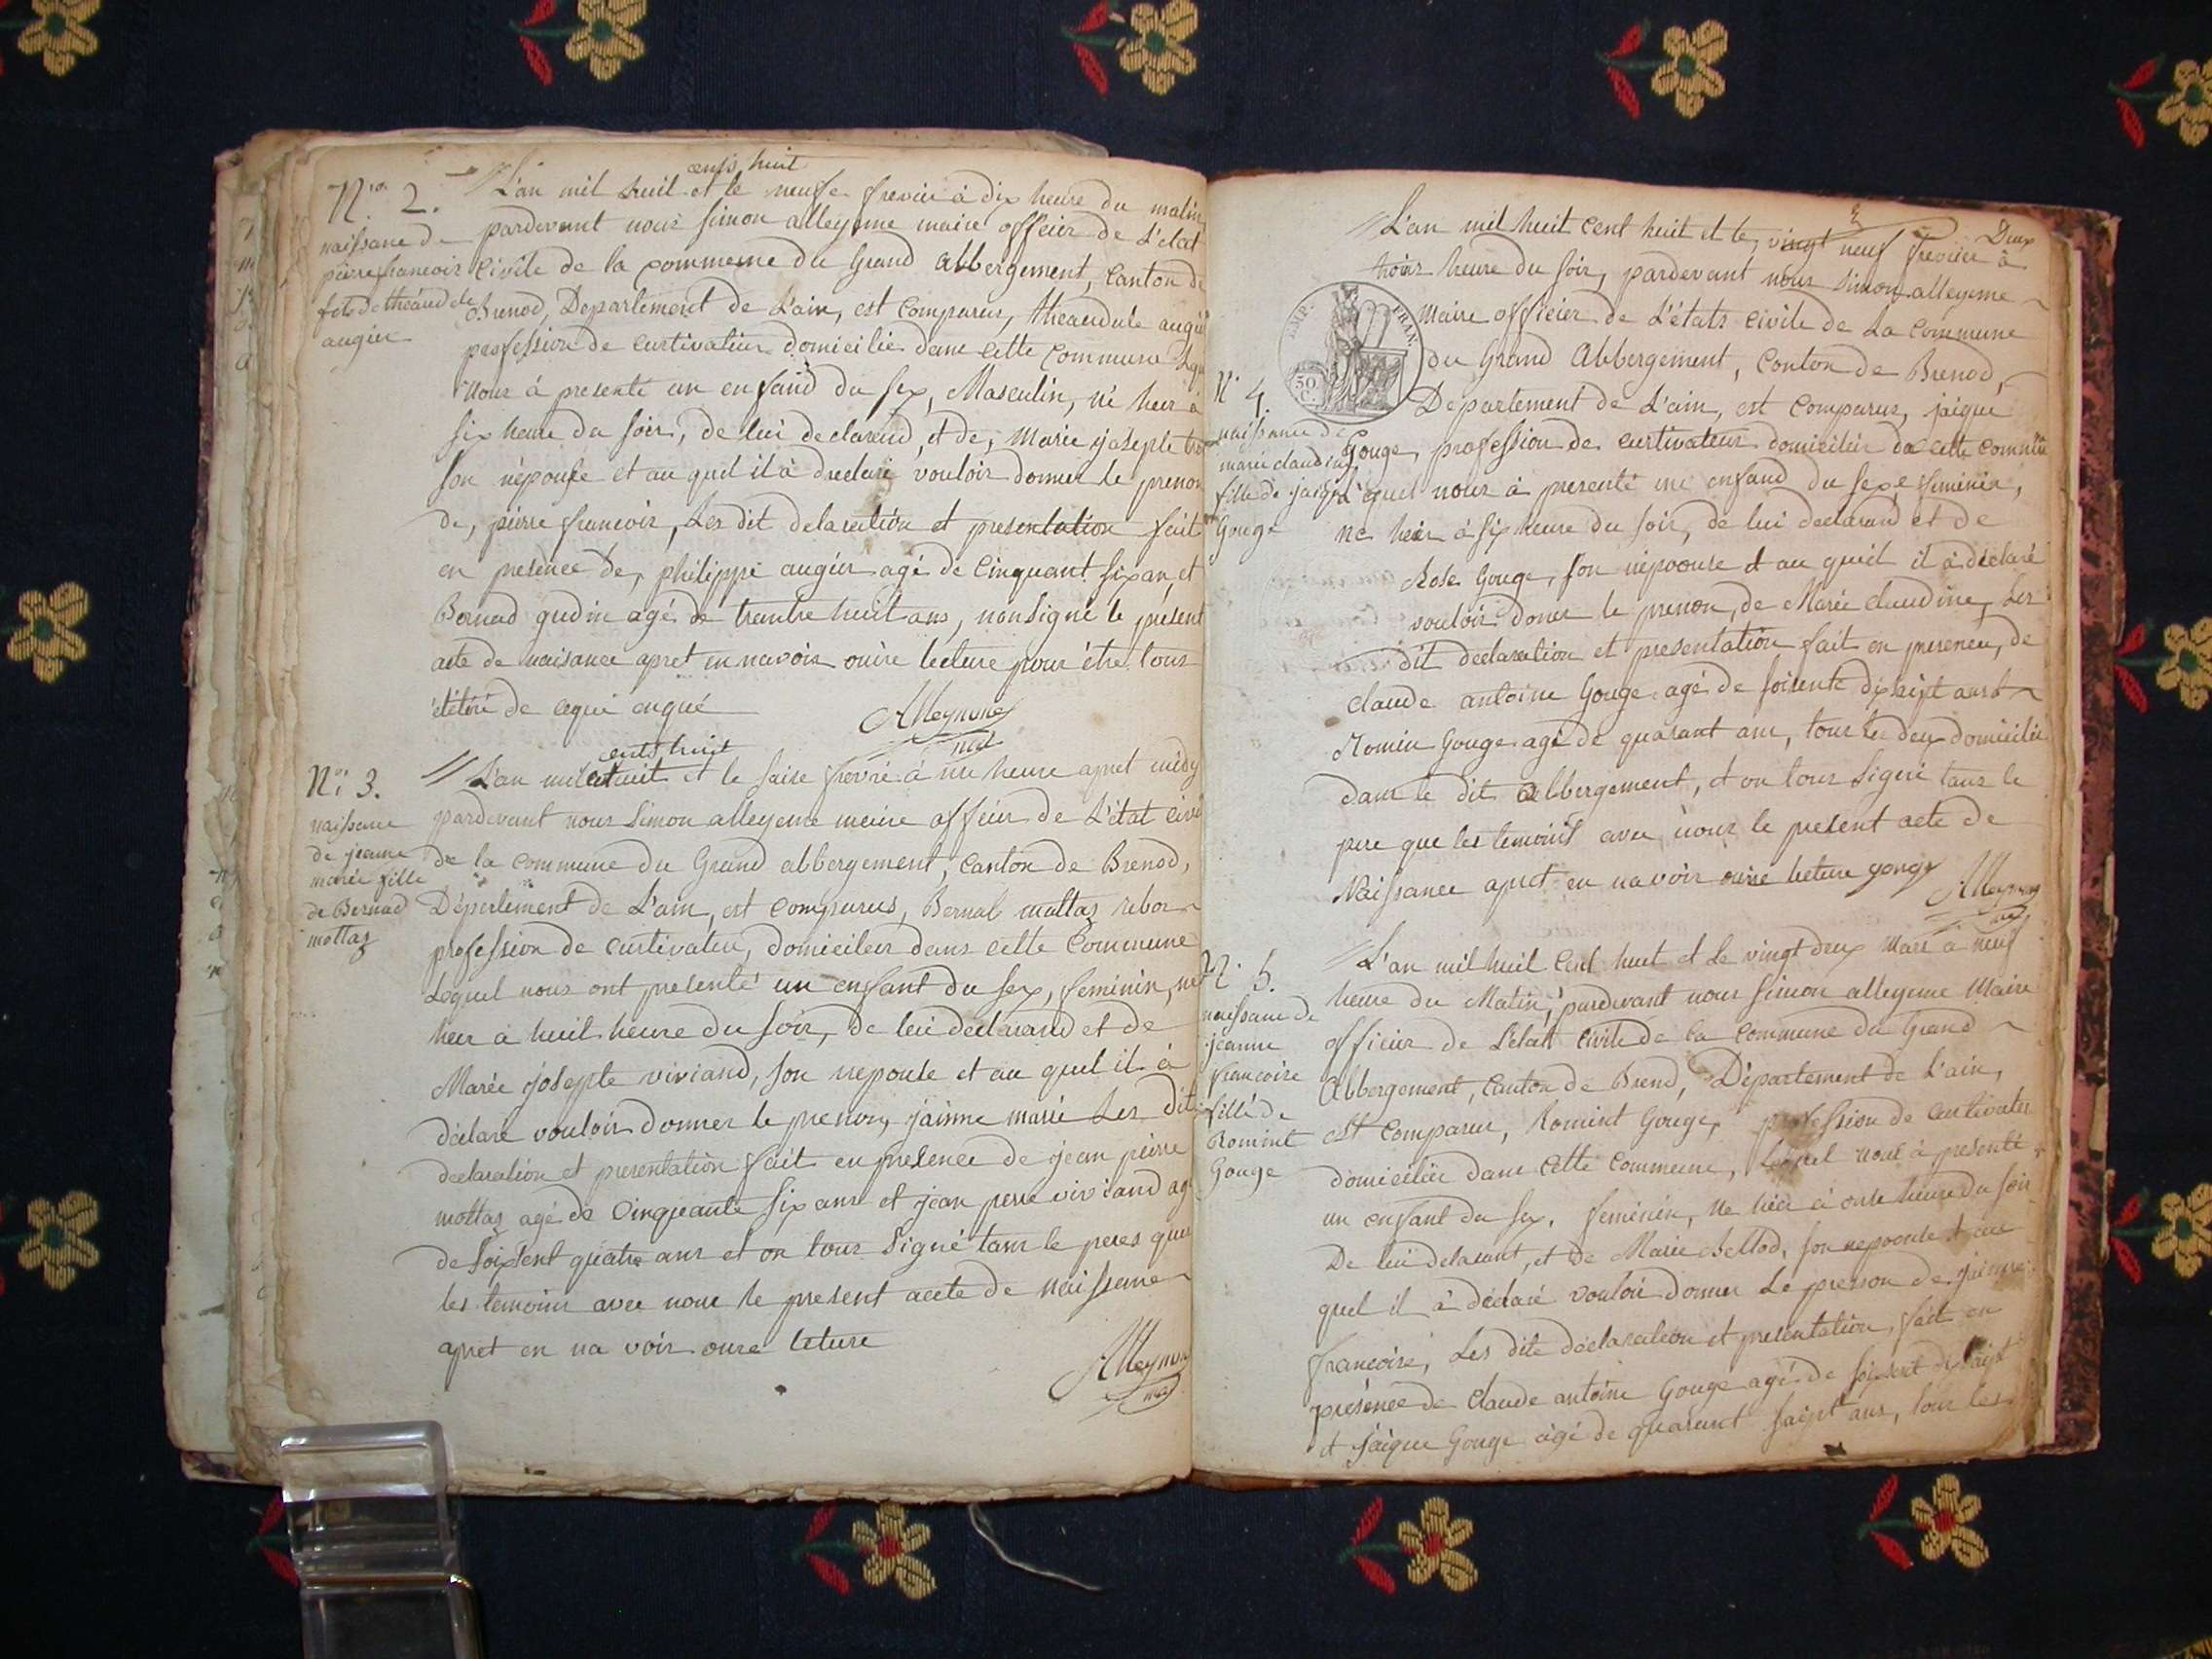 N.ro 2.
naissane de
pierre francoir
fils de théaudule
augier
cents huit
L'an mil huit et le neufe frevier à dix heure du matin
pardevant nous simon alleyeme maire officier de L'état
Civile de la commune du Grand abbergement, Canton de
Brenod, Departement de L'ain, est Comparus, théaudule augier
profession de curtivateur domicilié dans cette commune
nous à presenté un enfand du sex, Masculin, né hier à
six heure du soir, de lui declarand, et de, Marie josepte
son népouse et au quel il à declaré vouloir donner le prenon
de, pierre francoir, Les dit delaration et presentation fait
en presence de, philippe augier agé de Cinquant six an, et
Bernad gudin agé de trantre huit ans, nonsigné le present
acte de naisance apret en navoir ouire lecture pour être tous
de ce qui enqué
Alleyeme
N.ro 3.
naissane
de jeanne
marie fille
de Bernad
mottaz
cents huit
L'an mil huit et le saise frevié à une heure apret midy
pardevant nous Simon alleyeme maire officier de L'état civil
de la commune du Grand abbergement, Canton de Brenod,
Département de L'ain, est comparus, Bernad mottaz rebor
profession de curtivateur, domicilier dans cette Commune
Lequel nous ont presenté un enfant du sex, feminin, né
hier à huit heure du soir, de lui declarand et de
Marie josepte viviand, son nepouse et au quel il à
déclaré vouloir donner le prenon, jainne marie Les dit
declaration et presentation fait en presence de jean pierre
mottaz agé de Cinqueante six ans et jean perre viviand agé
de soixsent quatre ans et on tous signé tant le peres que
les temoins avec nous le present acete de naissance
apret en na voir ouire leture
Alleyeme
E
L'an mil huit cent huit et le, vingt neuf frevier à Deux
trois heure du soir, pardevant nous simon alleyeme
Maire officier de L'états civile de La commune
du Grand Abbergement, Conton de Brenod,
Département de L'ain, est Comparus, jaique
Gouge, profession de curtivateur domicilier da cette commune
Lequel nous à presenté une enfand du sexe feminin,
né hier à six heure du soir, de lui declarand et de
Rose Gouge, son népouse et au queil il à déclaré
vouloir doner le prenon, de Marie claudine, Les
dit declaration et presentation fait en presence, de
claude antoine Gouge agé de soisente dixsept ans et
Romin Gouge agé de quarant ans, tous les deux domicilié
dans le dit abbergement, et on tous signé tans le
pere que les temoins avec nous le present acte de
Naissance apret en navoir ouire lecture gouge
Alleyeme
EMP. FRAN.
50
C.
N.° 4.
naissance de
marie claudine
fille de jaique
Gouge
N.° 5.
naissane de
jeanne
francoise
fille de
Romint
Gouge
L'an mil huit Cent huit et Le vingt deux Mars à neuf
heure du Matin, pardevant nous simon alleyeme Maire
officier de L'état Civile de la commune du Grand
Abbergement, Canton de Brend, Département de L'ain,
est Comparus, Romint Gouge, profession de curtivateur
domicilier dans Cette commune, Lequel nous à presenté
un enfant du sex, feminin, né hier à onse heure du soir
De lui delarant, et de Marie Bellod, son nepoouse et au
quel il à déclaré vouloir donner Le prenon de jainne
francoise, Les dite déclaration et presentation, fait en
présence de Claude antoine Gouge agé de soixsent dixsaipt
et jaique Gouge agé de quarant saipt ans, tous les